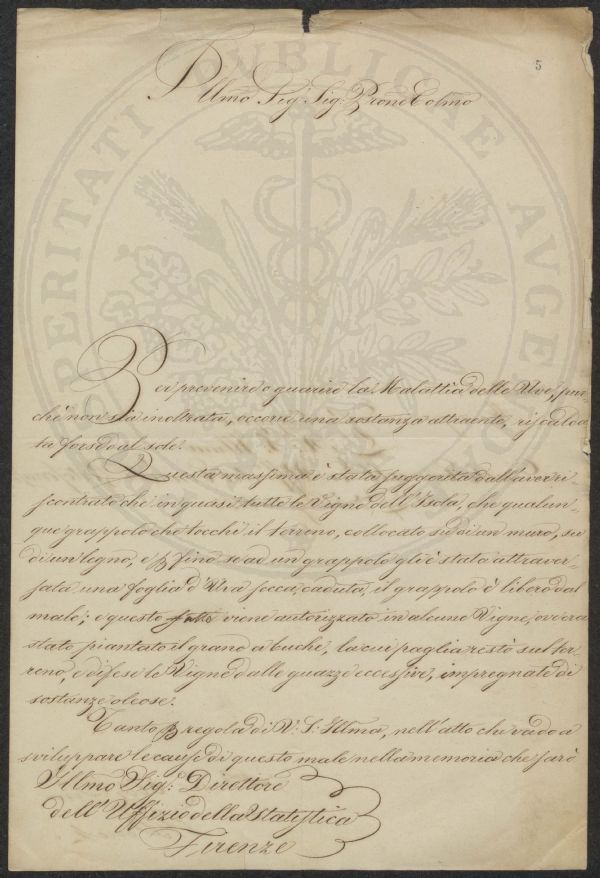 5
Illmo Sig.r Sig.r Prone Colmo
Per prevenire o guarire la Malattia delle Uve, pur-
chè non sia inoltrata, occorre una sostanza attraente, riscalda-
ta forse dal sole.
Questa massima è stata suggerita dall'aver ri-
scontrato che in quasi tutte le Vigne dell'Isola, che qualun-
que grappolo che tocchi il terreno, collocato su di un muro, su
di un legno, e p fino se ad un grappolo gli è stata attraver-
sata una foglia d'Uva secca, caduta, il grappolo è libero dal
male; e questo fatto viene autorizzato in alcune Vigne, ov'era
stato piantato il grano a buche, la cui paglia restò sul ter-
reno, e difese le Vigne dalle guazze eccessive, impregnate di
sostanze oleose.
Tanto p regola di V. S. Illma, nell'atto che vado a
sviluppare le cause di questo male nella memoria che farò
Illmo Sig.r Direttore
dell'Uffizio della Statistica
Firenze
PROSPERITATI PUBLICAE AUGE